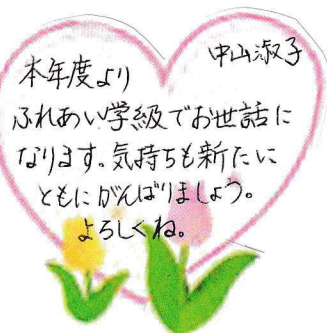 中山淑子
本年度より
ふれあい学級でお世話に
なります。気持ちも新たに
ともにがんばりましょう。
よろしくね。